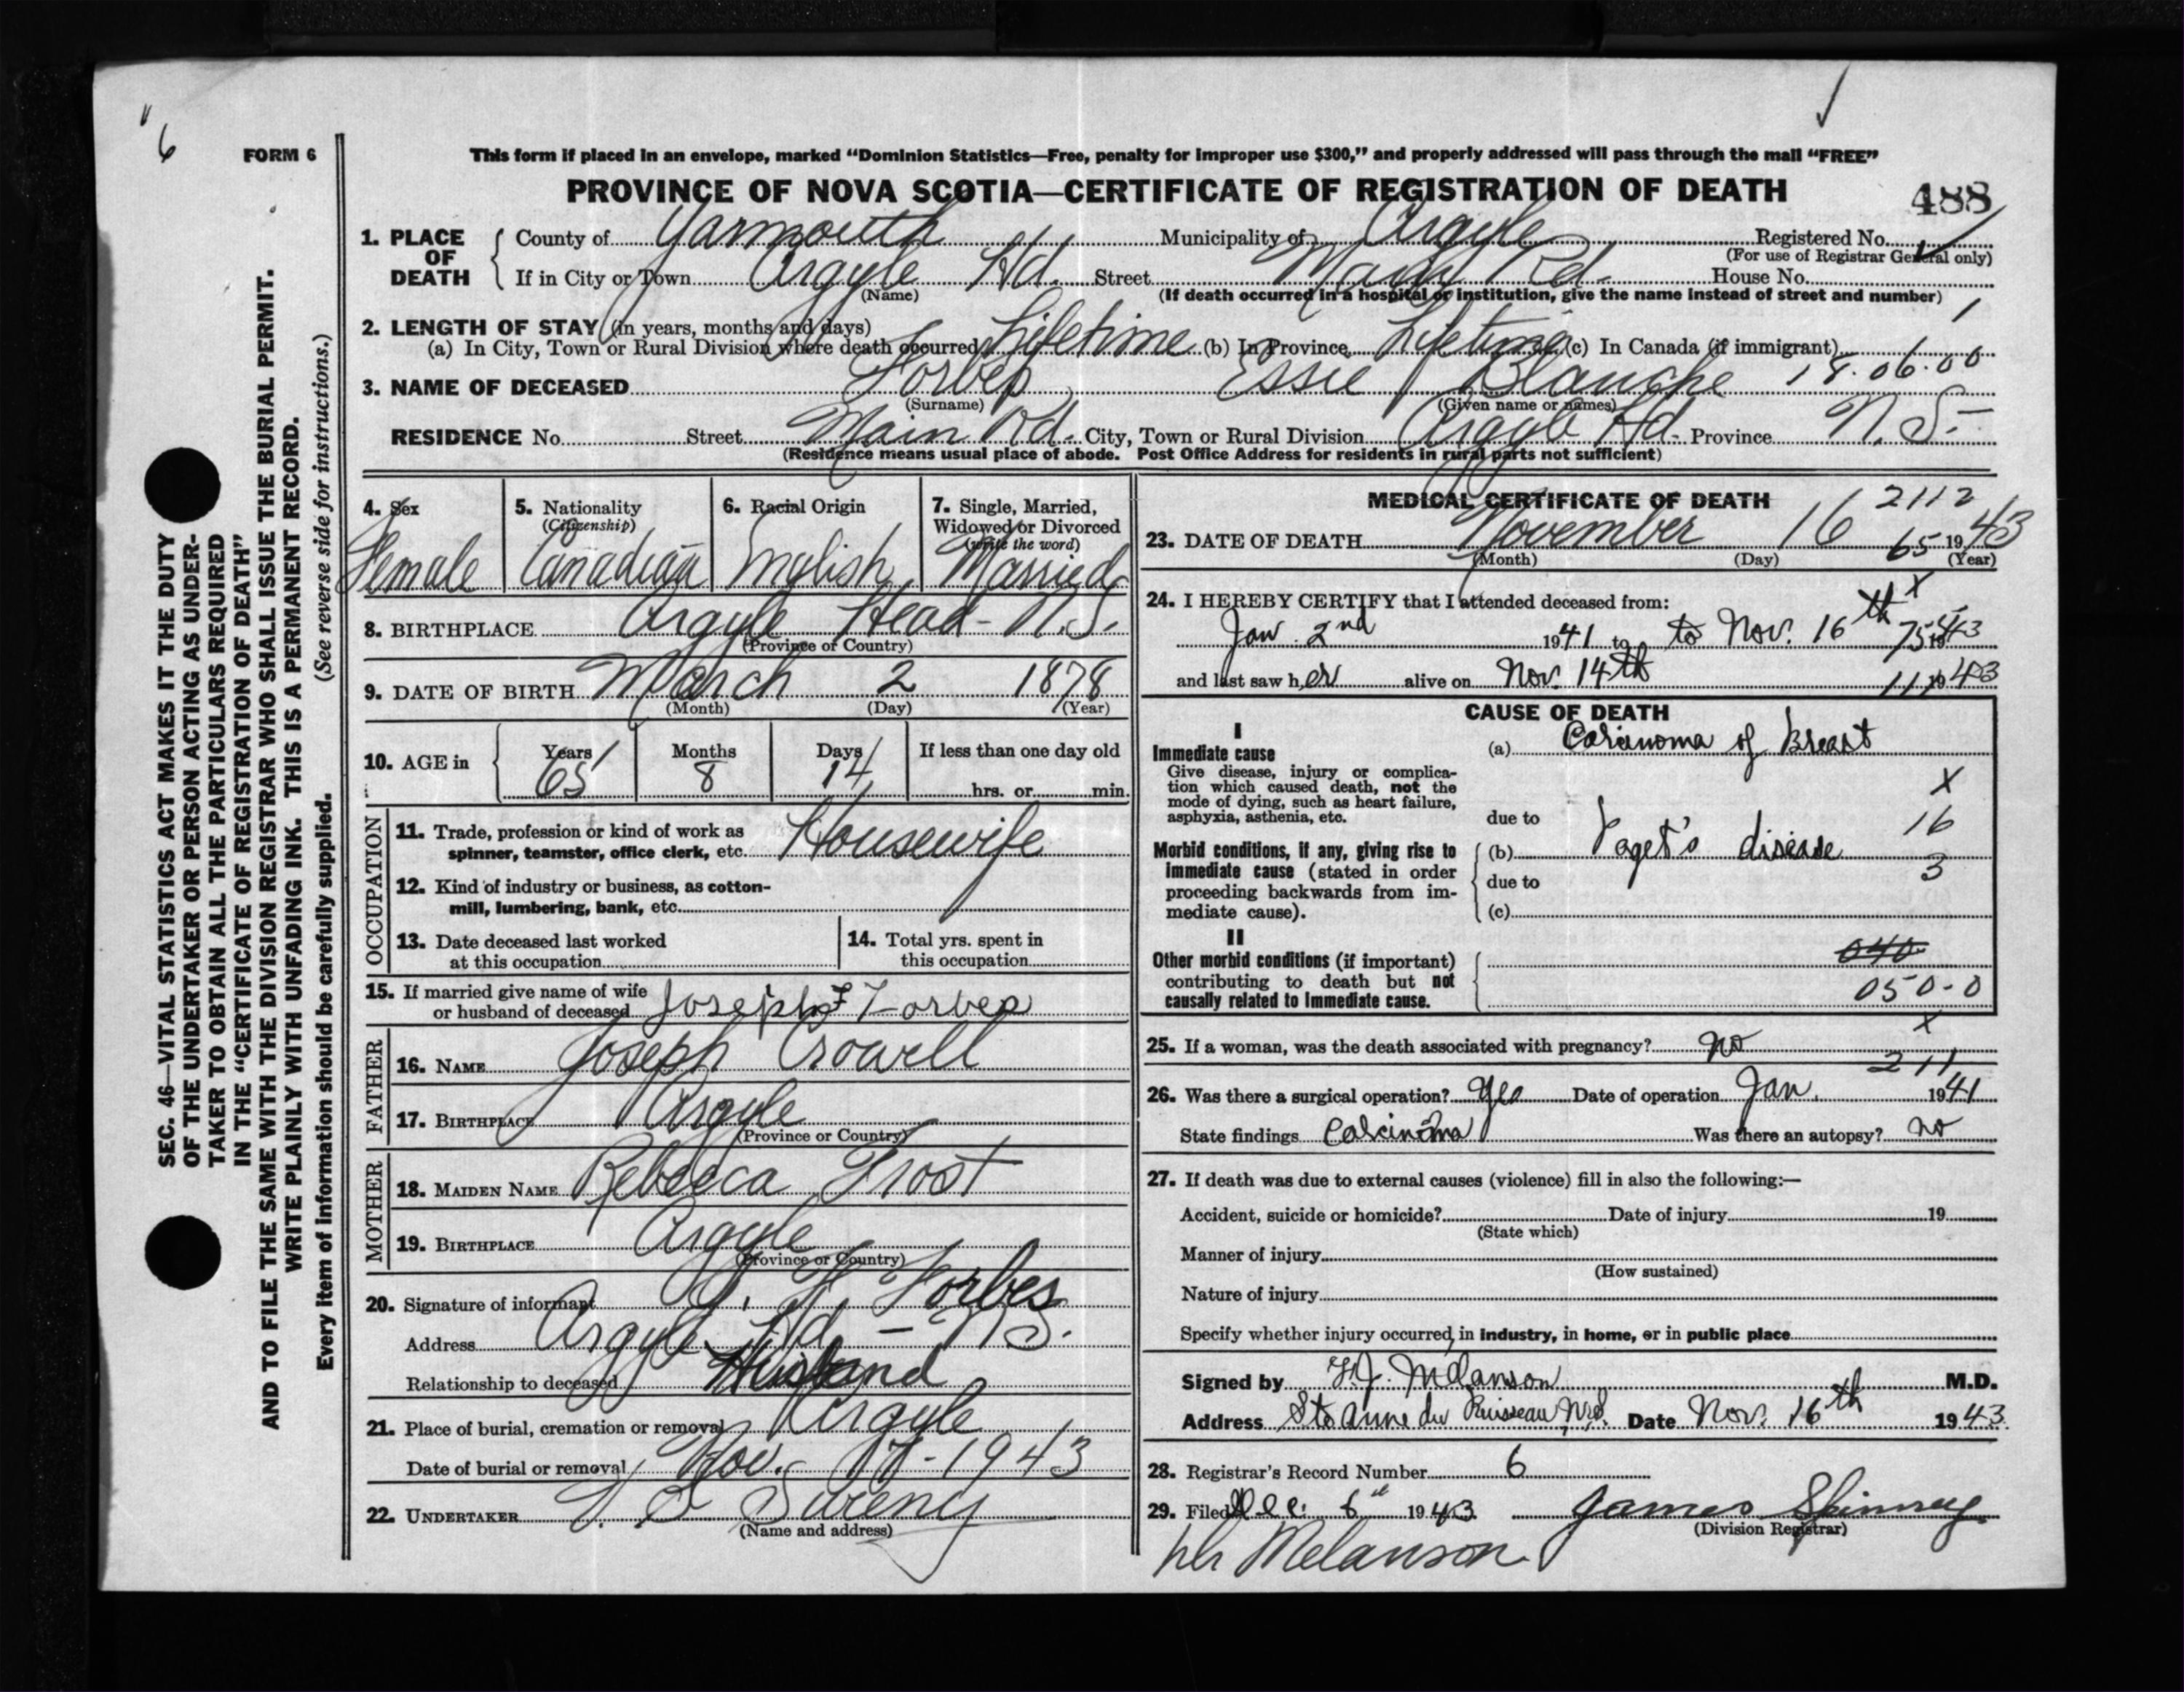 6
FORM 6
This form if placed in an envelope, marked “Dominion Statistics—Free, penalty for improper use $300,” and properly addressed will pass through the mail “FREE”
PROVINCE OF NOVA SCOTIA—CERTIFICATE OF REGISTRATION OF DEATH
488
1. PLACE OF DEATH County of Yarmouth Municipality of Argyle Registered No.
(For use of Registrar General only)
If in City or Town Argyle Hd. Street Main Rd. House No.
(Name) (If death occurred in a hospital or institution, give the name instead of street and number)
2. LENGTH OF STAY (in years, months and days)
(a) In City, Town or Rural Division where death occurred Lifetime (b) In Province Lifetime (c) In Canada (if immigrant)
18.06.00
3. NAME OF DECEASED Forbes Essie Blanche
(Surname) (Given name or names)
RESIDENCE No. Street Main Rd. City, Town or Rural Division Argyle Hd. Province N.S.
(Residence means usual place of abode. Post Office Address for residents in rural parts not sufficient)
SEC. 46—VITAL STATISTICS ACT MAKES IT THE DUTY
OF THE UNDERTAKER OR PERSON ACTING AS UNDER-
TAKER TO OBTAIN ALL THE PARTICULARS REQUIRED
IN THE “CERTIFICATE OF REGISTRATION OF DEATH”
AND TO FILE THE SAME WITH THE DIVISION REGISTRAR WHO SHALL ISSUE THE BURIAL PERMIT.
WRITE PLAINLY WITH UNFADING INK. THIS IS A PERMANENT RECORD.
Every item of information should be carefully supplied. (See reverse side for instructions.)
4. Sex 5. Nationality 6. Racial Origin 7. Single, Married,
(Citizenship) Widowed or Divorced
(write the word)
Female Canadian English Married
8. BIRTHPLACE Argyle Head - N.S.
(Province or Country)
9. DATE OF BIRTH March 2 1878
(Month) (Day) (Year)
10. AGE in Years Months Days If less than one day old
65 8 14 hrs. or min.
OCCUPATION
11. Trade, profession or kind of work as
spinner, teamster, office clerk, etc. Housewife
12. Kind of industry or business, as cotton-
mill, lumbering, bank, etc.
13. Date deceased last worked
at this occupation
14. Total yrs. spent in
this occupation
15. If married give name of wife
or husband of deceased Joseph F Forbes
FATHER
16. NAME Joseph Crowell
17. BIRTHPLACE Argyle
(Province or Country)
MOTHER
18. MAIDEN NAME Rebecca Frost
19. BIRTHPLACE Argyle
(Province or Country)
20. Signature of informant J. F. Forbes
Address Argyle Hd. - N.S.
Relationship to deceased Husband
21. Place of burial, cremation or removal Argyle
Date of burial or removal Nov. 17 - 1943
22. UNDERTAKER Sweeny
(Name and address)
MEDICAL CERTIFICATE OF DEATH
2112
23. DATE OF DEATH November 16 65 1943
(Month) (Day) (Year)
24. I HEREBY CERTIFY that I attended deceased from: x
Jan 2nd 1941 to to Nov. 16th 1943
and last saw her alive on Nov. 14th 1943
CAUSE OF DEATH
I
Immediate cause (a) Carcinoma of Breast
Give disease, injury or complica-
tion which caused death, not the
mode of dying, such as heart failure,
asphyxia, asthenia, etc. due to
x
16
3
Morbid conditions, if any, giving rise to (b) Paget's disease
immediate cause (stated in order due to
proceeding backwards from im-
mediate cause). (c)
II
Other morbid conditions (if important) 040
contributing to death but not
causally related to immediate cause. 050-0
x
25. If a woman, was the death associated with pregnancy? no
211
26. Was there a surgical operation? yes Date of operation Jan. 1941
State findings Carcinoma Was there an autopsy? no
27. If death was due to external causes (violence) fill in also the following:—
Accident, suicide or homicide? Date of injury 19
(State which)
Manner of injury
(How sustained)
Nature of injury
Specify whether injury occurred in industry, in home, or in public place
Signed by Melanson M.D.
Address Ste Anne du Ruisseau N.S. Date Nov. 16th 1943
28. Registrar's Record Number 6
29. Filed Dec. 6th 1943 James Spinney
(Division Registrar)
Melanson